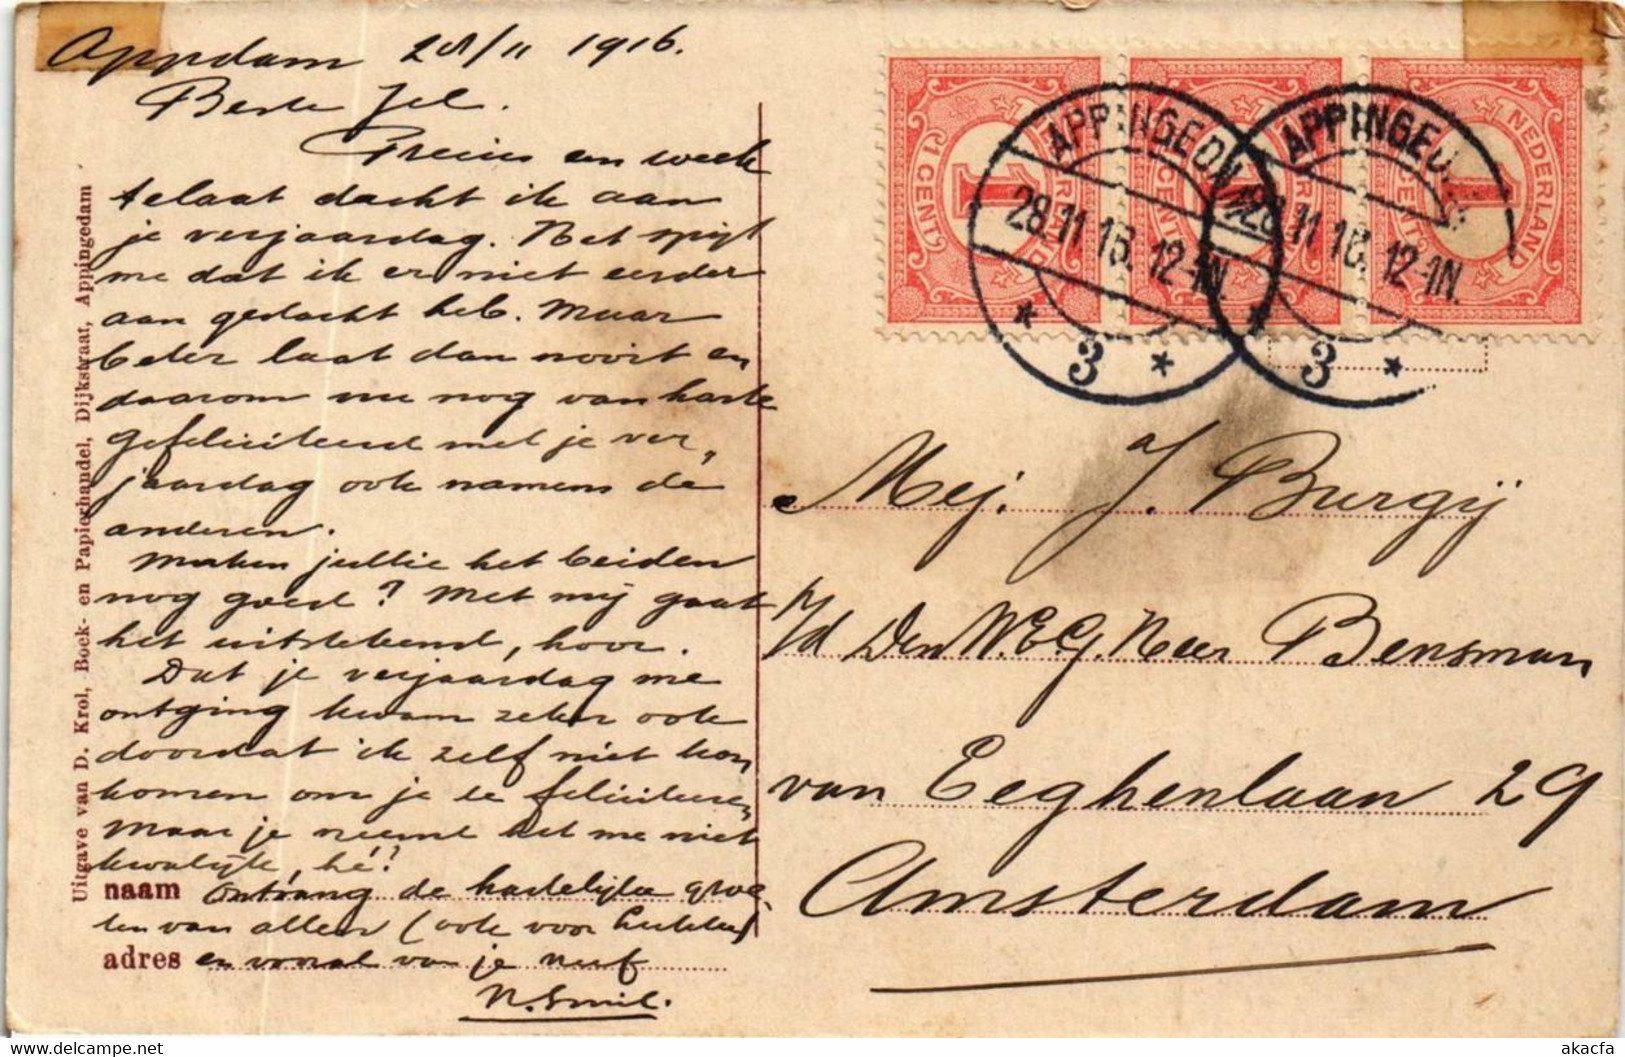 Appdam 28/11 1916.
Beste Jel.
Precies een week
telaat dacht ik aan
je verjaardag. Het spijt
me dat ik er niet eerder
aan gedacht heb. Maar
beter laat dan nooit en
daarom nu nog van harte
gefeliciteerd met je ver-
jaardag ook namens de
anderen.
Maken jullie het beiden
nog goed? Met mij gaat
het uitstekend, hoor.
Dat je verjaardag me
ontging kwam zeker ook
doordat ik zelf niet kon
komen om je te feliciteren,
Maar je neemt het me niet
kwalijk, hé?
naam Ontvang de hartelijke groe-
ten van allen (ook voor
adres en vooral van je neef
N. Smil.
Uitgave van D. Krol, Boek- en Papierhandel, Dijkstraat, Appingedam
1 CENT NEDERLAND
APPINGEDAM
28.11.16. 12-1N.
3
APPINGEDAM
28.11.16. 12-1N.
3
Mej. J. Burgij
p/d Den W.E.G. Heer Bensman
van Eeghenlaan 29
Amsterdam
akacfa